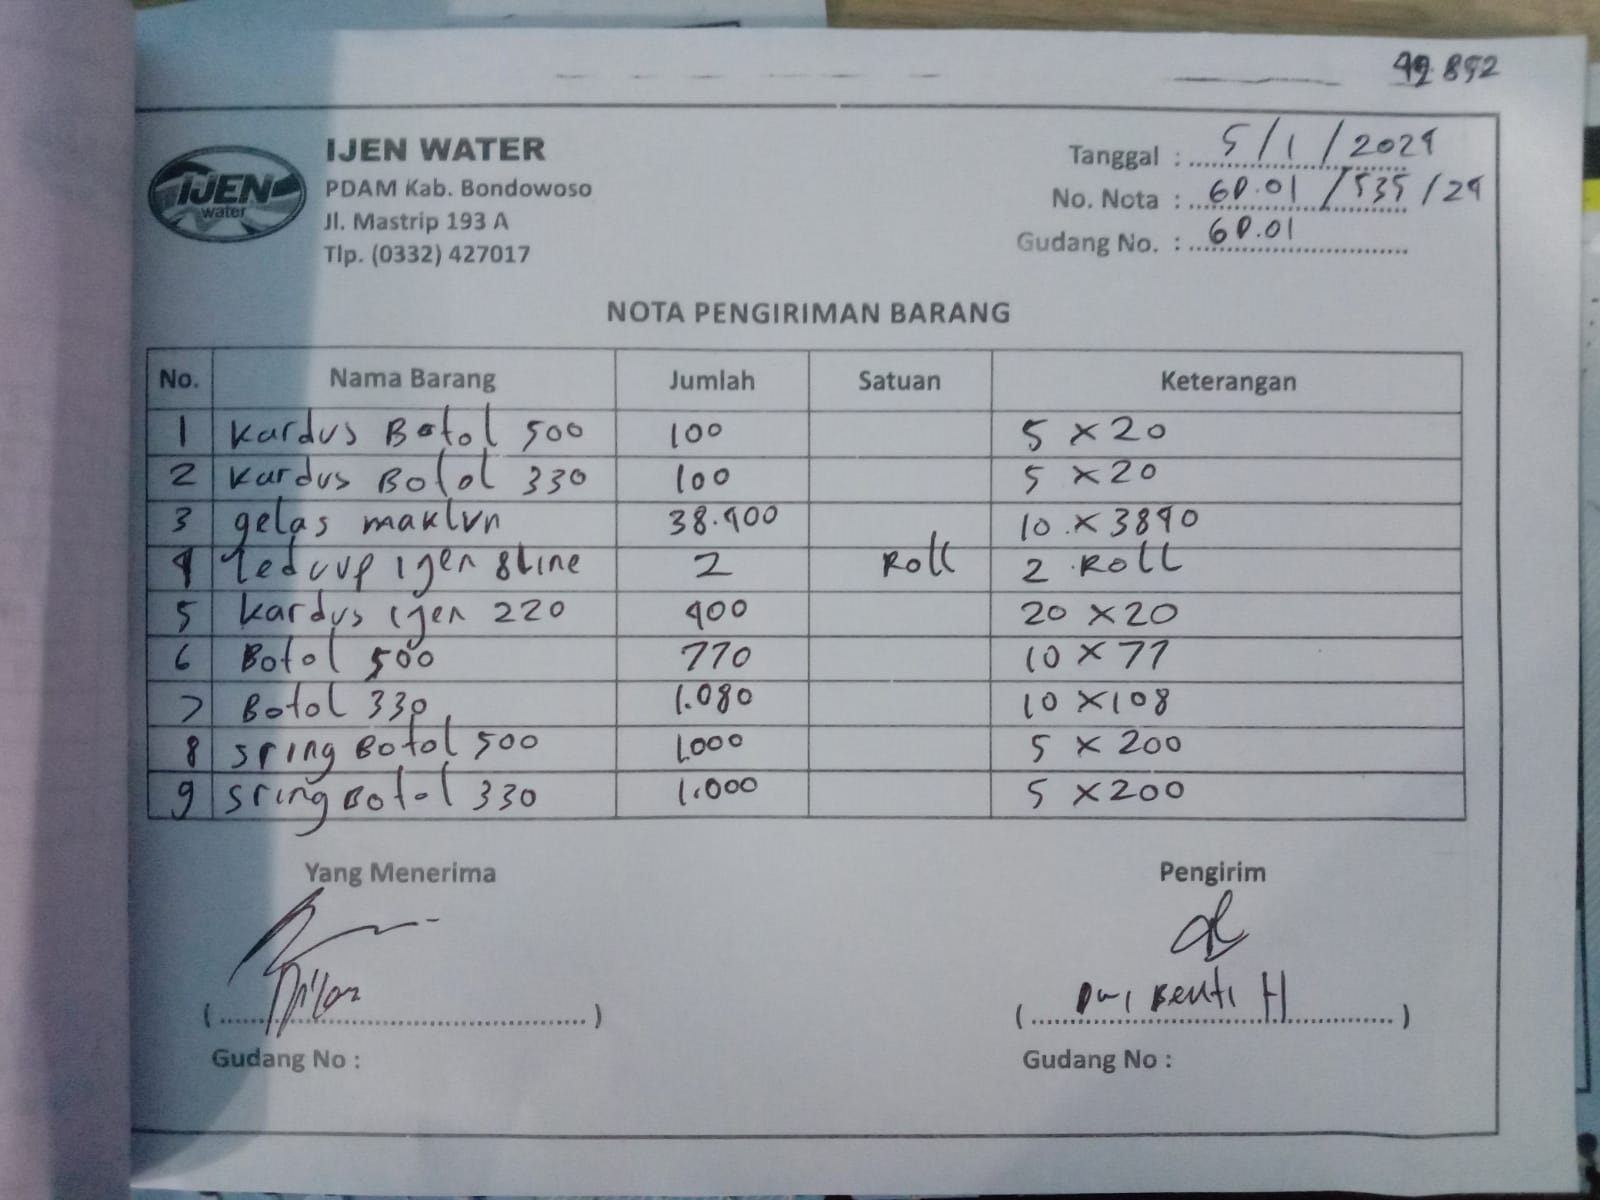 42.852
IJEN
water
IJEN WATER
PDAM Kab. Bondowoso
Jl. Mastrip 193 A
Tlp. (0332) 427017
Tanggal : 5/1/2024
No. Nota : GD.01/535/24
Gudang No. : GD.01
NOTA PENGIRIMAN BARANG
No. Nama Barang Jumlah Satuan Keterangan
1 kardus Botol 500 100 5 x 20
2 kardus Botol 330 100 5 x 20
3 gelas maklun 38.400 10 x 3840
4 Led cup ijen 8 line 2 Roll 2 Roll
5 kardus ijen 220 400 20 x 20
6 Botol 500 770 10 x 77
7 Botol 330 1.080 10 x 108
8 sring Botol 500 1.000 5 x 200
9 sring Botol 330 1.000 5 x 200
Yang Menerima Pengirim
Dwi Benti H
Gudang No : Gudang No :